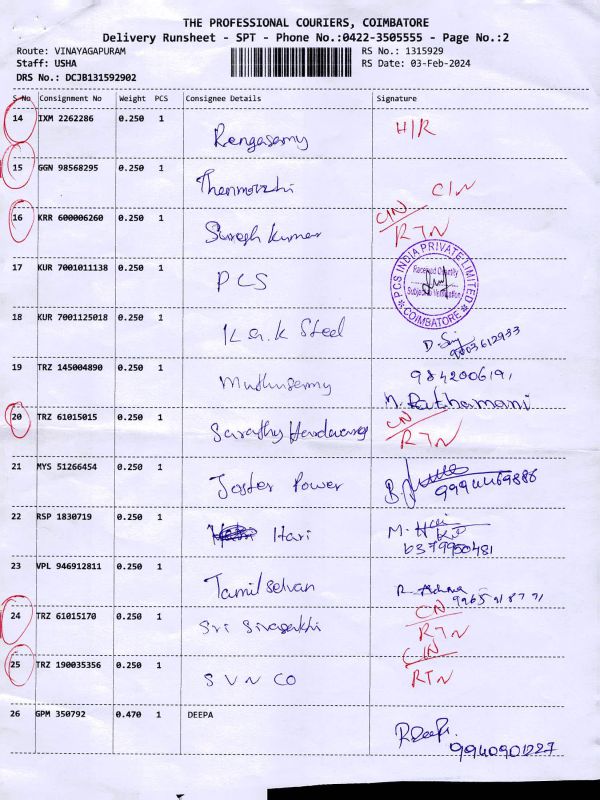 THE PROFESSIONAL COURIERS, COIMBATORE
Delivery Runsheet - SPT - Phone No.:0422-3505555 - Page No.:2
Route: VINAYAGAPURAM RS No.: 1315929
Staff: USHA RS Date: 03-Feb-2024
DRS No.: DCJB131592902
S No Consignment No Weight PCS Consignee Details Signature
14 IXM 2262286 0.250 1 Rengasamy H/R
15 GGN 98568295 0.250 1 Thenmozhi CIN
16 KRR 600006260 0.250 1 Suresh Kumar CIN
RTN
17 KUR 7001011138 0.250 1 PCS
PCS INDIA PRIVATE LIMITED
Received Quantity
Subject to Verification
COIMBATORE
18 KUR 7001125018 0.250 1 K Steel
19 TRZ 145004890 0.250 1 Muthusamy
20 TRZ 61015015 0.250 1 Sarathy CN
RTN
21 MYS 51266454 0.250 1 Power
22 RSP 1830719 0.250 1 Hari M. Hari
6379950481
23 VPL 946912811 0.250 1 Tamilselvan
24 TRZ 61015170 0.250 1 Sri Sivasakhi CN
RTN
25 TRZ 190035356 0.250 1 SVN CO CIN
RTN
26 GPM 350792 0.470 1 DEEPA R.Deepa
9940901227